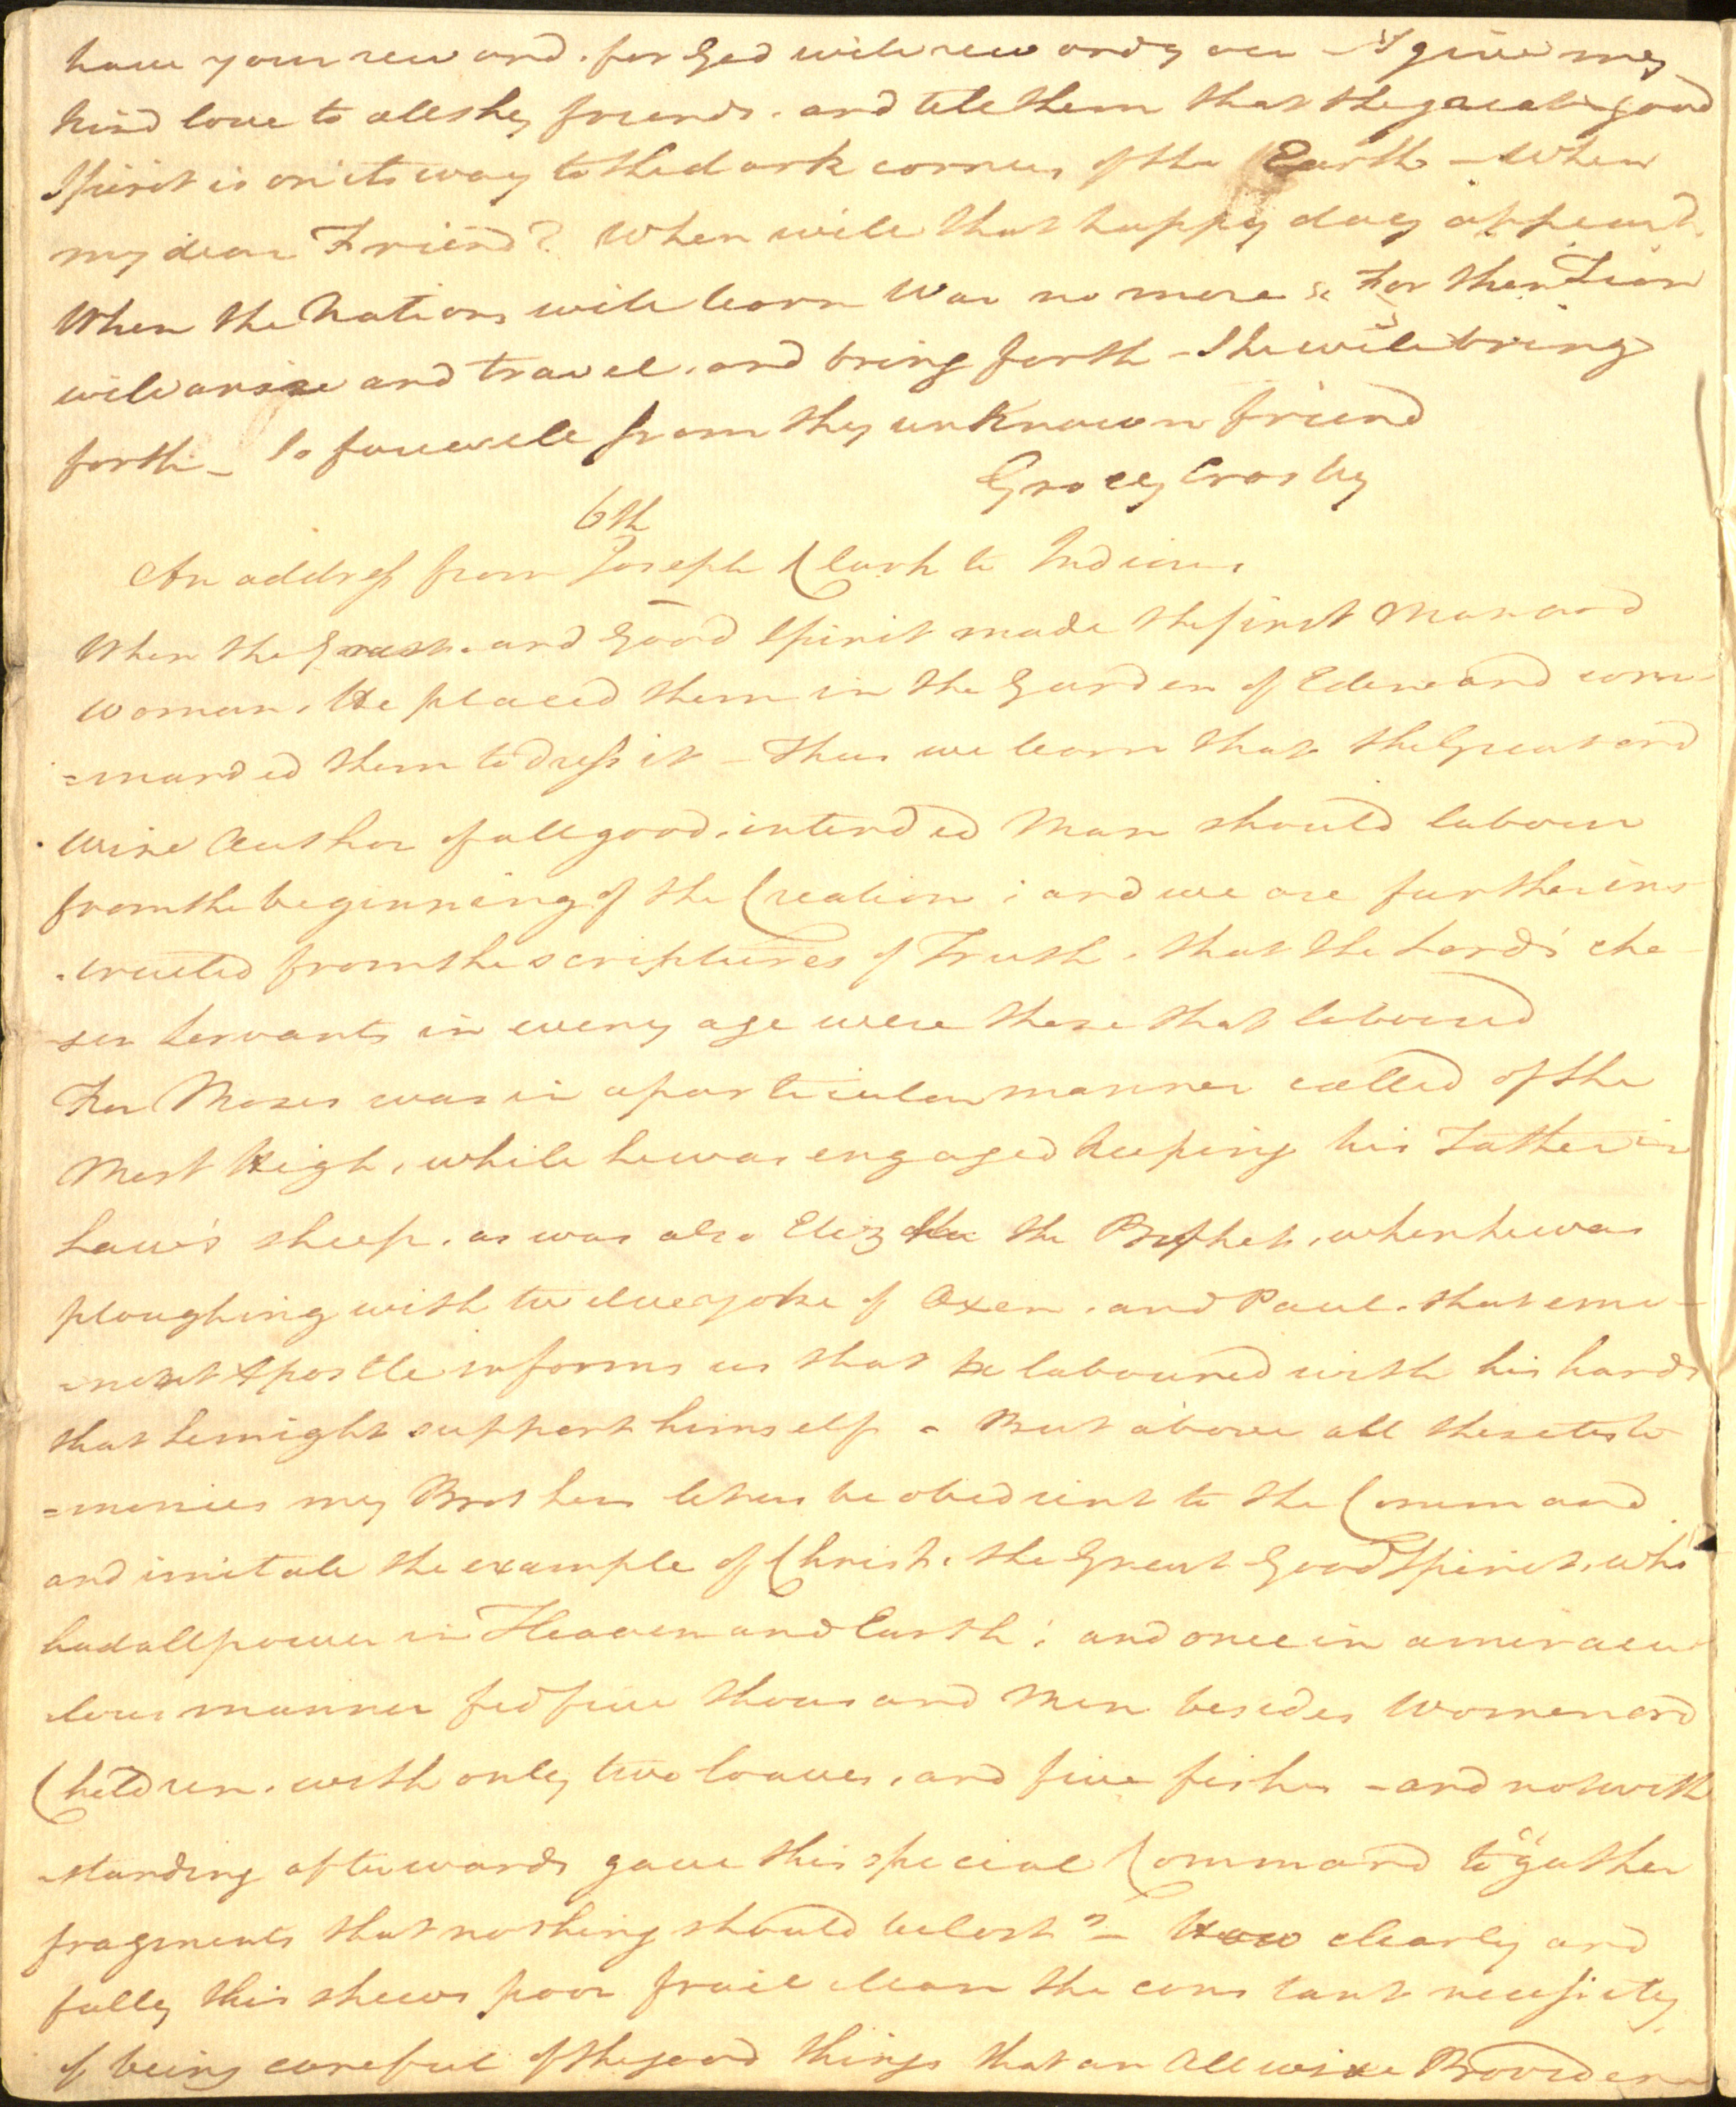 have your reward. for God will reward you I give my
kind love to all thy friends. and tell them that the great good
Spirit is on its way to the dark corners of the Earth - When
my dear Friend? When will that happy day appear?
When the Nations will learn War no more & For then Zion
will arise and travel, and bring forth - She will bring
forth - So farewell from thy unknown friend
Gracey Crosby
6th
An address from Joseph Clark to Indians
When the Great and Good Spirit made the first Man and
woman, He placed them in the Garden of Eden and com-
=manded them to dress it - Thus we learn that the Great and
wise Author of all good, intended Man should labour
from the beginning of the Creation; and we are further ins
tructed from the scriptures of Truth, that the Lord's cho-
sen Servants in every age were those that laboured
For Moses was in a particular manner called of the
Most High, while he was engaged keeping his Father in
Law's sheep, as was also Elizha the Prophet, when he was
ploughing with twelve yoke of Oxen, and Paul, that emi-
-nent Apostle informs us that he laboured with his hands
that he might support himself - But above all these testi
=monies my Brothers let us be obedient to the Command
and imitate the example of Christ, the Great Good Spirit, who
had all power in Heaven and Earth; and once in a miracu
lous manner fed five thousand Men besides Women and
Children, with only two loaves, and five fishes - and notwith
-standing afterwards gave this special Command to "gather
fragments that nothing should be lost" - How clearly and
fully this shews poor frail man the constant necessity
of being careful of the good things that an All wise Providen